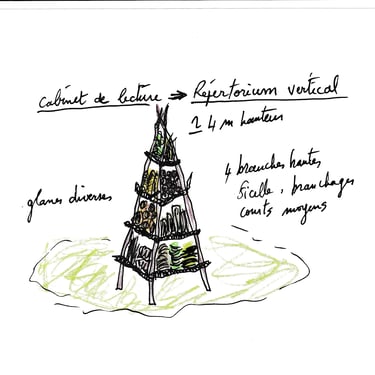 cabinet de lecture → Répertorium vertical
1 4 m hauteur
4 branches hautes
ficelle, branchages
courts moyens
glanes diverses